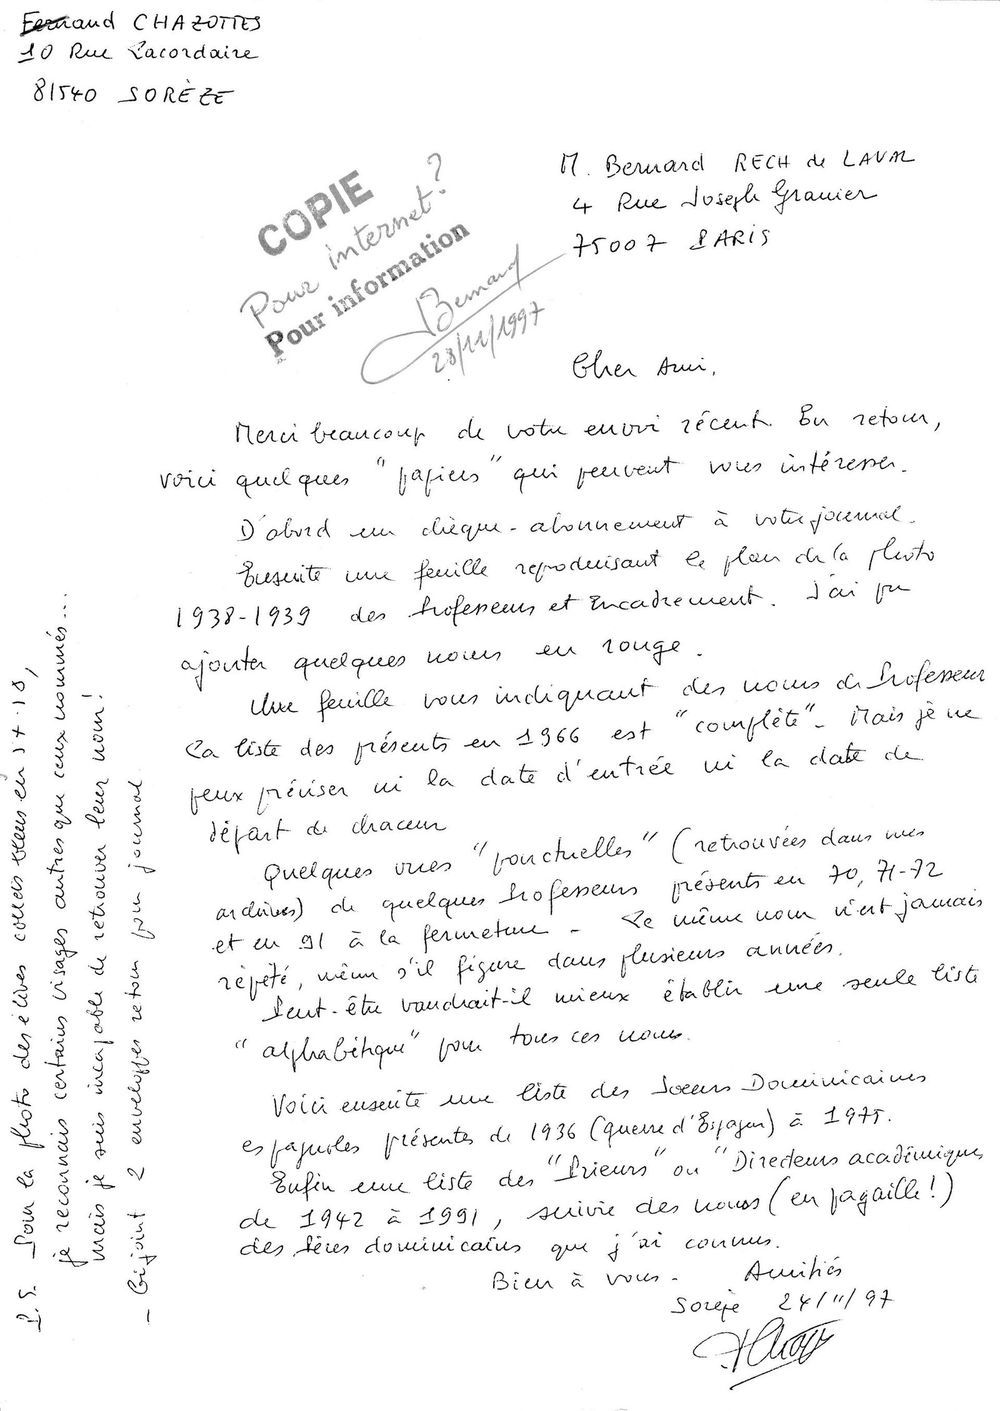 Fernand CHAZOTTES
10 Rue Lacordaire
81540 SORÈZE
M. Bernard RECH de LAVAL
4 Rue Joseph Granier
75007 PARIS
COPIE
Pour internet?
Pour information
Bernard
28/11/1997
Cher Ami,
Merci beaucoup de votre envoi récent. En retour,
voici quelques "papiers" qui peuvent vous intéresser.
D'abord un chèque-abonnement à votre journal.
Ensuite une feuille reproduisant le plan de la photo
1938-1939 des Professeurs et Encadrement. J'ai pu
ajouter quelques noms en rouge.
Une feuille vous indiquant des noms de Professeurs
La liste des présents en 1966 est "complète". Mais je ne
peux préciser ni la date d'entrée ni la date de
départ de chacun
Quelques vues "ponctuelles" (retrouvées dans mes
archives) de quelques Professeurs présents en 70, 71-72
et en 91 à la fermeture - Le même nom n'est jamais
répété, même s'il figure dans plusieurs années.
Peut-être vaudrait-il mieux établir une seule liste
"alphabétique" pour tous ces noms.
Voici ensuite une liste des Soeurs Dominicaines
espagnoles présentes de 1936 (guerre d'Espagne) à 1975.
Enfin une liste des "Prieurs" ou "Directeurs académiques
de 1942 à 1991, suivie des noms (en pagaille!)
des Pères dominicains que j'ai connus.
Bien à vous - Amitiés
Sorèze 24/11/97
P.S. - Pour la photo des élèves collets bleus en 37-38,
je reconnais certains visages autres que ceux nommés...
mais je suis incapable de retrouver leur nom!
- Ci joint 2 enveloppes retour pour journal